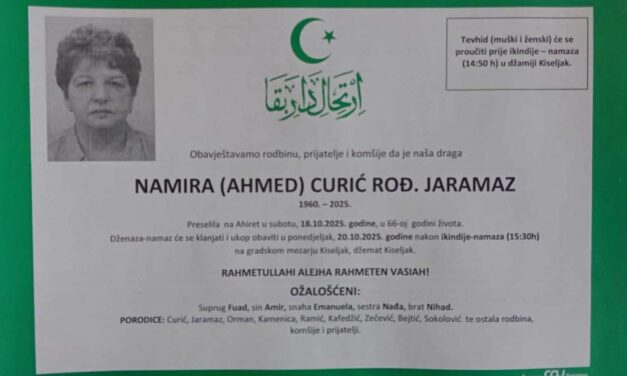 Tevhid (muški i ženski) će se
proučiti prije ikindije – namaza
(14:50 h) u džamiji Kiseljak.
Obavještavamo rodbinu, prijatelje i komšije da je naša draga
NAMIRA (AHMED) CURIĆ ROĐ. JARAMAZ
1960. – 2025.
Preselila na Ahiret u subotu, 18.10.2025. godine, u 66-oj godini života.
Dženaza-namaz će se klanjati i ukop obaviti u ponedjeljak, 20.10.2025. godine nakon ikindije-namaza (15:30h)
na gradskom mezarju Kiseljak, džemat Kiseljak.
RAHMETULLAHI ALEJHA RAHMETEN VASIAH!
OŽALOŠĆENI:
Suprug Fuad, sin Amir, snaha Emanuela, sestra Nađa, brat Nihad.
PORODICE: Curić, Jaramaz, Orman, Kamenica, Ramić, Kafedžić, Zečević, Bejtić, Sokolović te ostala rodbina,
komšije i prijatelji.